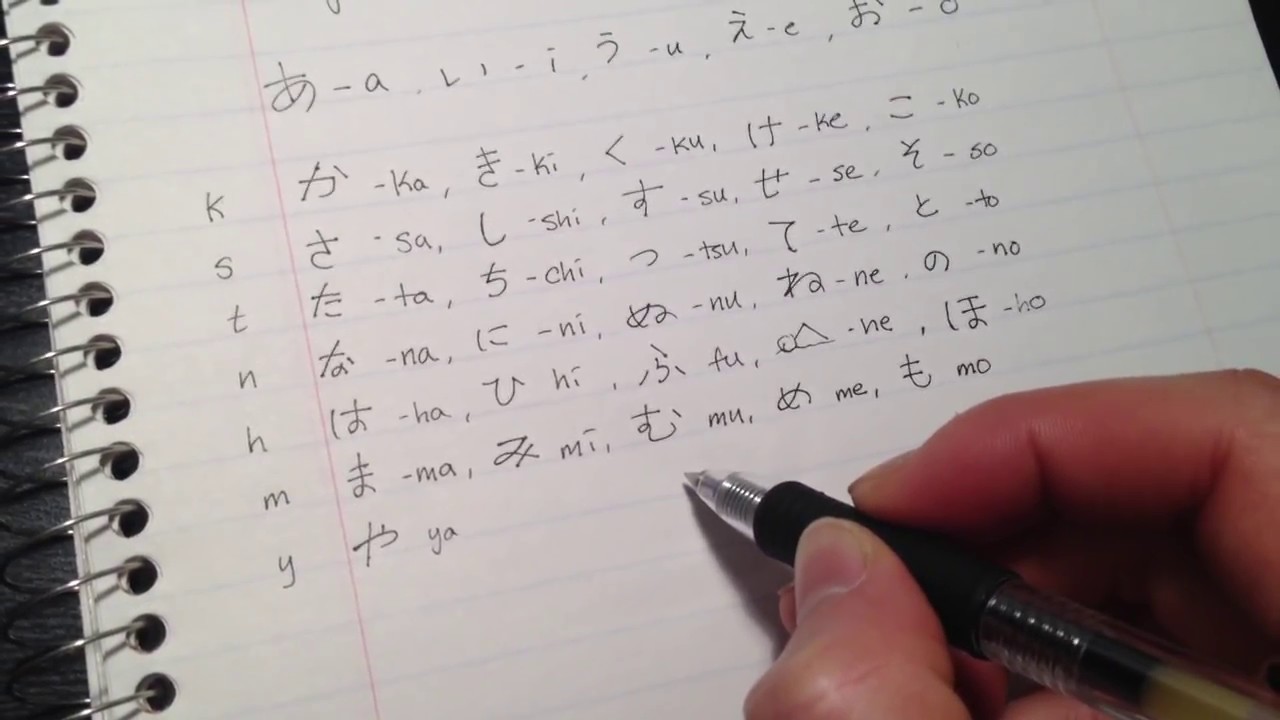 あ - a , い - i , う - u , え - e , お - o
k か - ka , き - ki , く - ku , け - ke , こ - ko
s さ - sa , し - shi , す - su , せ - se , そ - so
t た - ta , ち - chi , つ - tsu , て - te , と - to
n な - na , に - ni , ぬ - nu , ね - ne , の - no
h は - ha , ひ hi , ふ fu , へ - ne , ほ - ho
m ま - ma , み mi , む mu , め me , も mo
y や ya